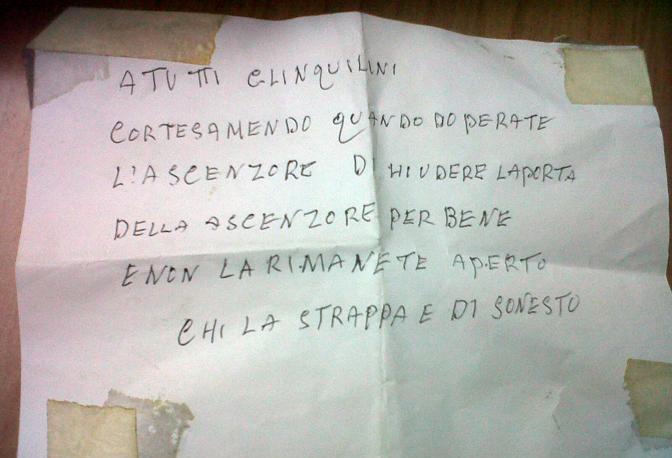 A TUTTI GLINQUILINI
CORTESAMENDO QUANDO DOPERATE
L'ASCENZORE DI HIUDERE LAPORTA
DELLA ASCENZORE PER BENE
E NON LA RIMANETE APERTO
CHI LA STRAPPA E DISONESTO